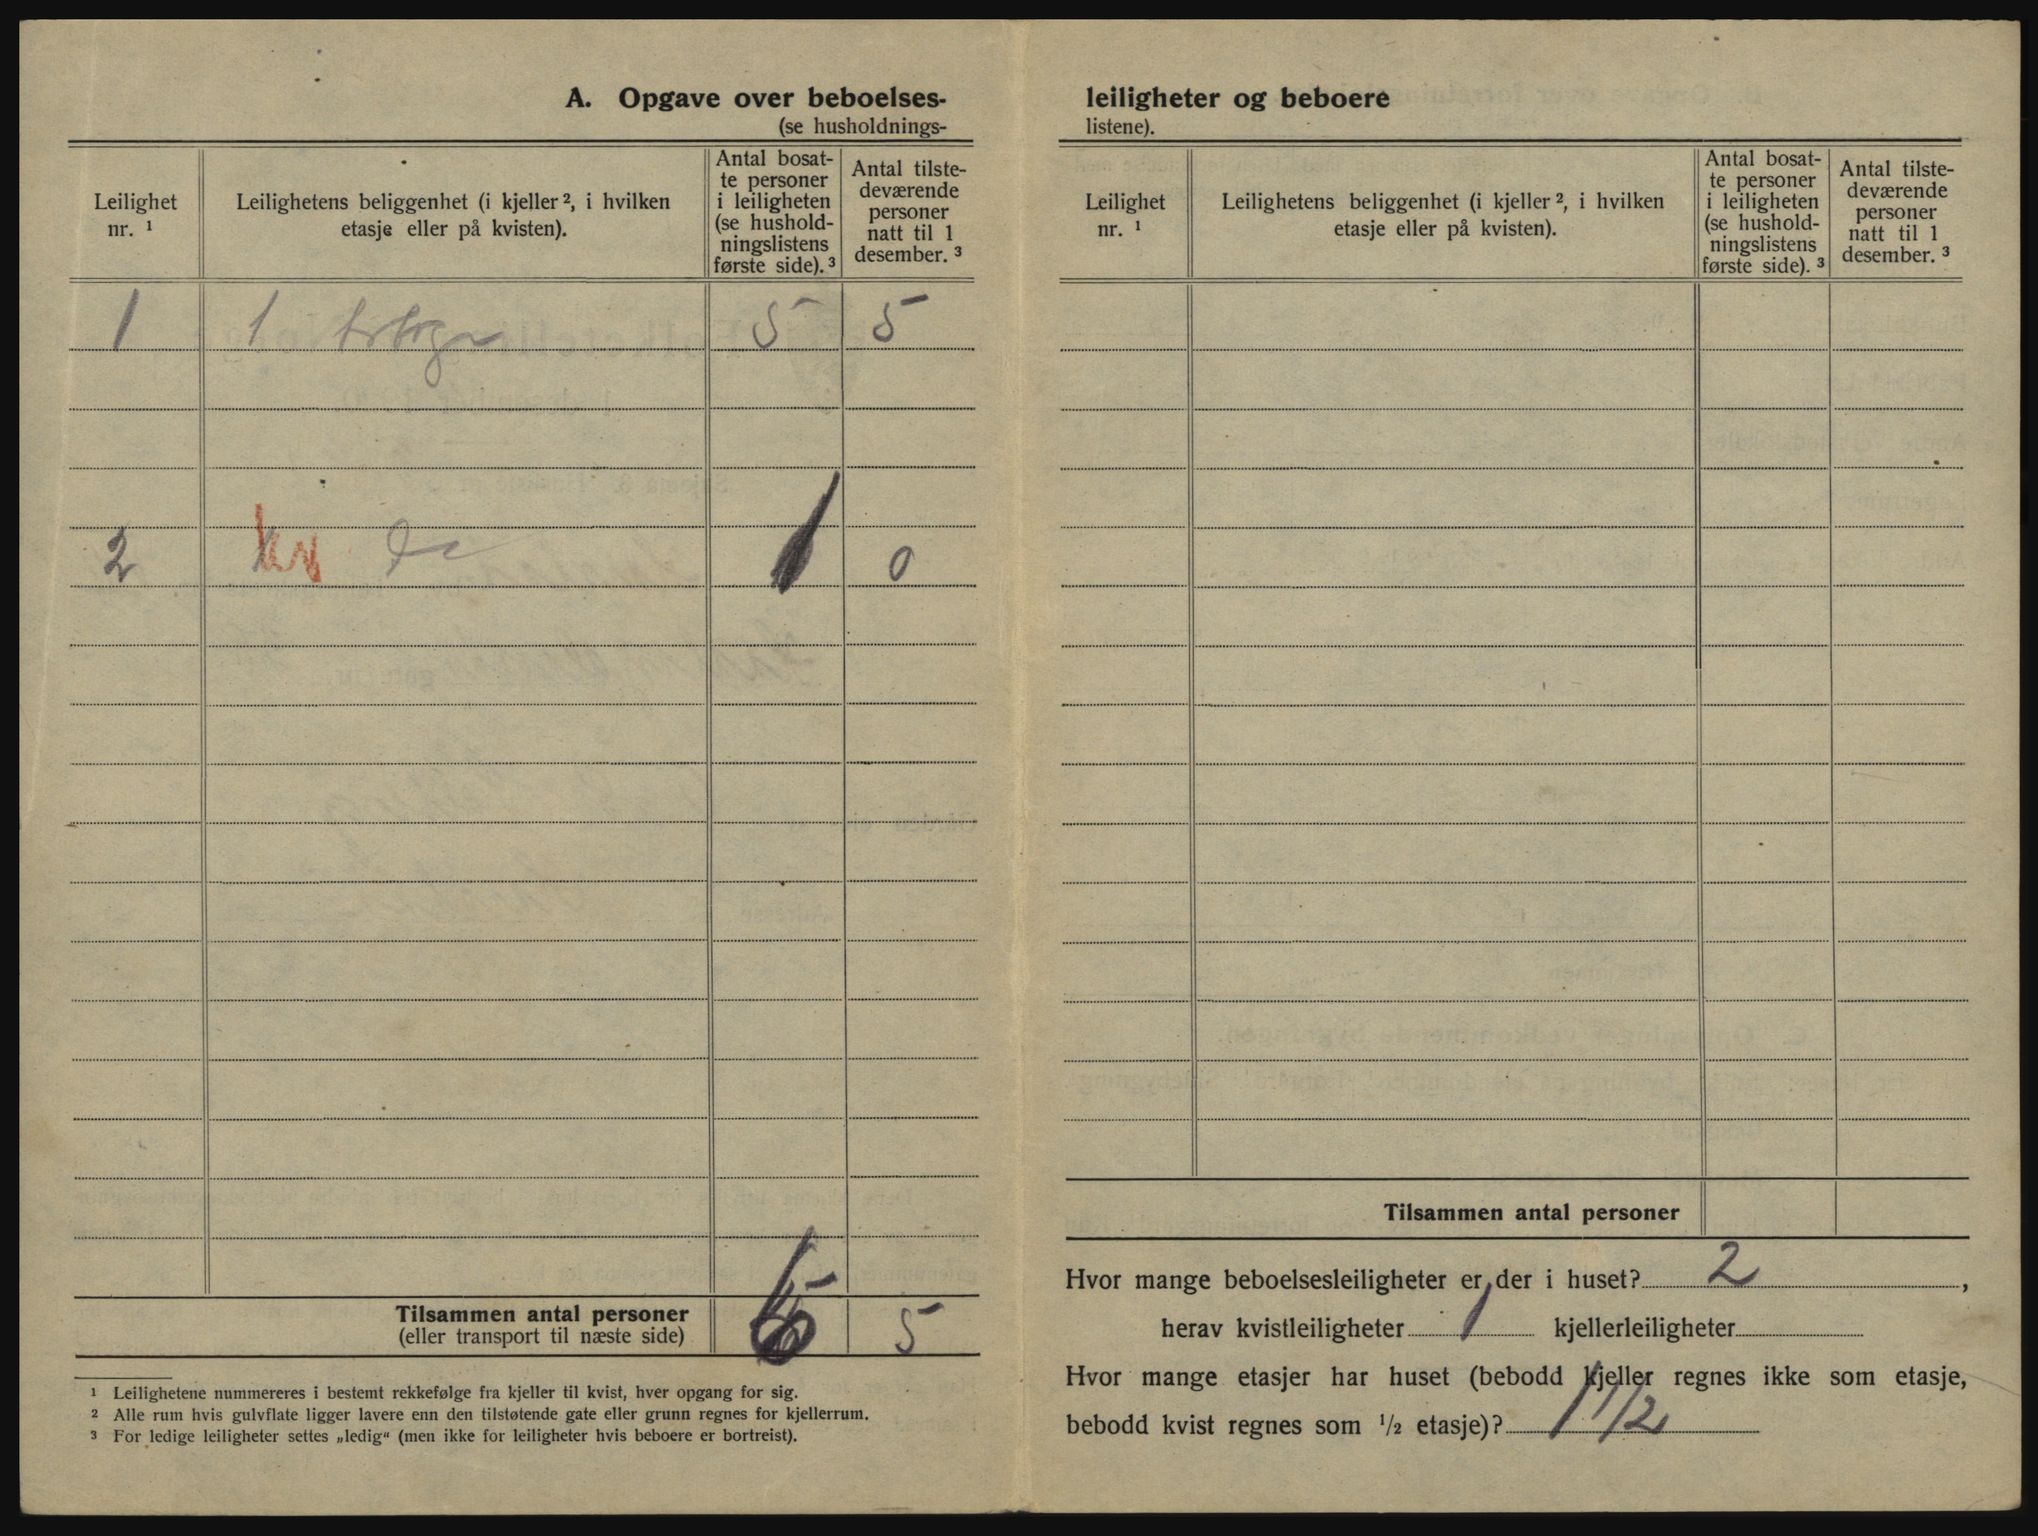 A. Opgave over beboelses-
(se husholdnings-
Leilighet
nr. ¹
Leilighetens beliggenhet (i kjeller ², i hvilken
etasje eller på kvisten).
Antal bosat-
te personer
i leiligheten
(se hushold-
ningslistens
første side). ³
Antal tilste-
deværende
personer
natt til 1
desember. ³
1 1 5 5
2 kv do 1 0
Tilsammen antal personer
(eller transport til næste side)
6 5
¹ Leilighetene nummereres i bestemt rekkefølge fra kjeller til kvist, hver opgang for sig.
² Alle rum hvis gulvflate ligger lavere enn den tilstøtende gate eller grunn regnes for kjellerrum.
³ For ledige leiligheter settes „ledig“ (men ikke for leiligheter hvis beboere er bortreist).
leiligheter og beboere
listene).
Leilighet
nr. ¹
Leilighetens beliggenhet (i kjeller ², i hvilken
etasje eller på kvisten).
Antal bosat-
te personer
i leiligheten
(se hushold-
ningslistens
første side). ³
Antal tilste-
deværende
personer
natt til 1
desember. ³
Tilsammen antal personer
Hvor mange beboelsesleiligheter er der i huset? 2 ,
herav kvistleiligheter 1 kjellerleiligheter
Hvor mange etasjer har huset (bebodd kjeller regnes ikke som etasje,
bebodd kvist regnes som ½ etasje)? 1 1/2